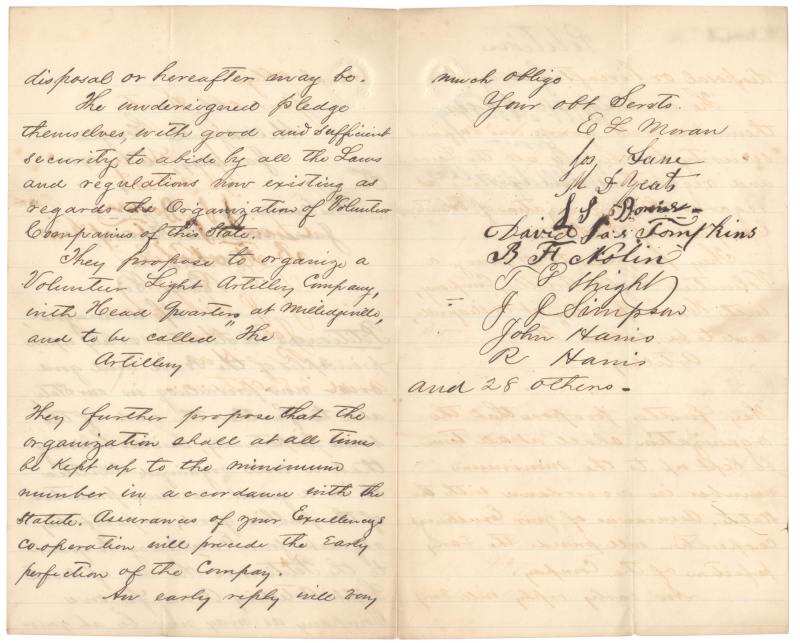 disposal or hereafter may be.
The undersigned pledge
themselves, with good and sufficient
security to abide by all the Laws
and regulations now existing as
regards the Organization of Volunteer
Companies of this State.
They propose to organize a
Volunteer Light Artillery Company,
with Head Quarters at Milledgeville,
and to be called "The
Artillery
They further propose that the
organization shall at all times
be kept up to the minimum
number in accordance with the
Statute. Assurances of your Excellencys
co-operation will precede the Early
perfection of the Compay.
An early reply will very
much oblige
Your obt Servts.
E L Moran
Jos Lane
M J Yeats
L S
David Jas Tompkins
B H Nolin
T P Wright
J J Simpson
John Harris
R Harris
and 28 others.